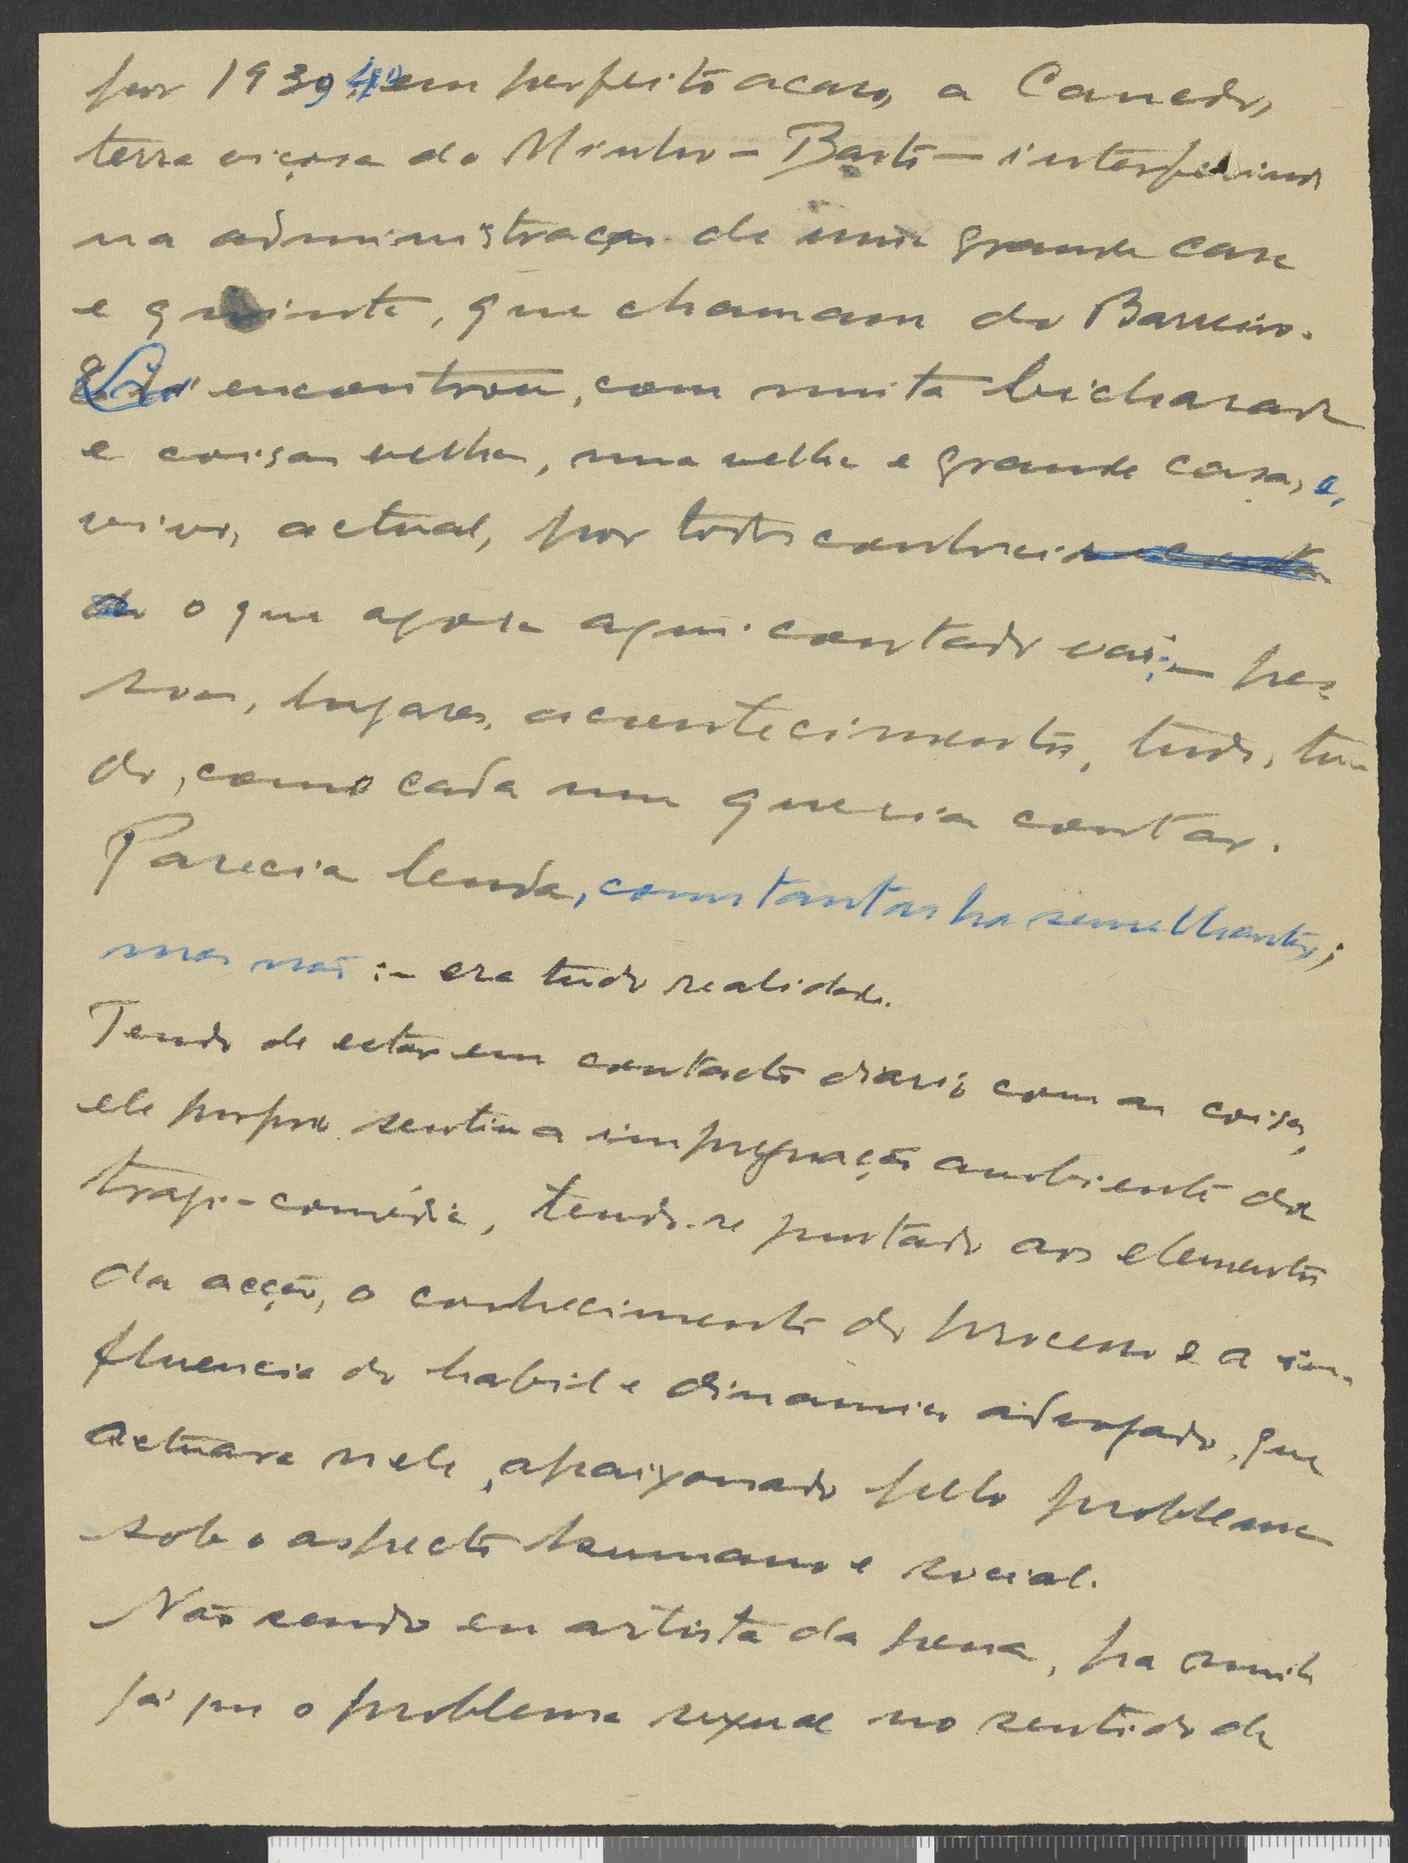 por 1939 40 em perfeito acaso, a Canedo,
terra viçosa do Minho - Basto - interferindo
na administração de uma grande casa
e quinta, que chamam do Barreiro.
encontrou, com muita bicharada
e coisas velhas, uma velha e grande casa, e,
vivo, actual, por todos conhecido
o que agora aqui contado vai; - pes-
soas, lugares, acontecimentos, tudo, tu-
do, como cada um queria contar.
Parecia lenda, como tantas ha semelhantes;
mas não: - era tudo realidade.
Tendo de estar em contacto diario com as coisas,
ele proprio sentiu a impregnação ambiente da
tragi-comédia, tendo-se juntado aos elementos
da acção, o conhecimento do processo e a in-
fluencia do habil e dinamico advogado, que
actuara nele, apaixonado pelo problema
sob o aspecto humano e social.
Não sendo eu artista da pena, ha muito
já pus o problema sexual no sentido de